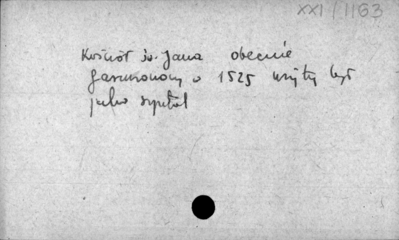 XXI/1163
Kościół św. Jana obecnie
garnizonowy w 1525 użyty był
jako szpital